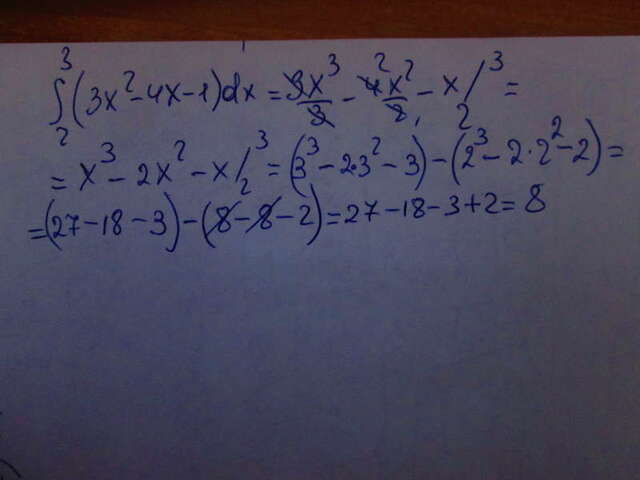 ∫₂³(3x²-4x-1)dx = 3x³/3 - 4x²/2 - x/₂³ =
= x³ - 2x² - x/₂³ = (3³ - 2·3² - 3) - (2³ - 2·2² - 2) =
= (27 - 18 - 3) - (8 - 8 - 2) = 27 - 18 - 3 + 2 = 8